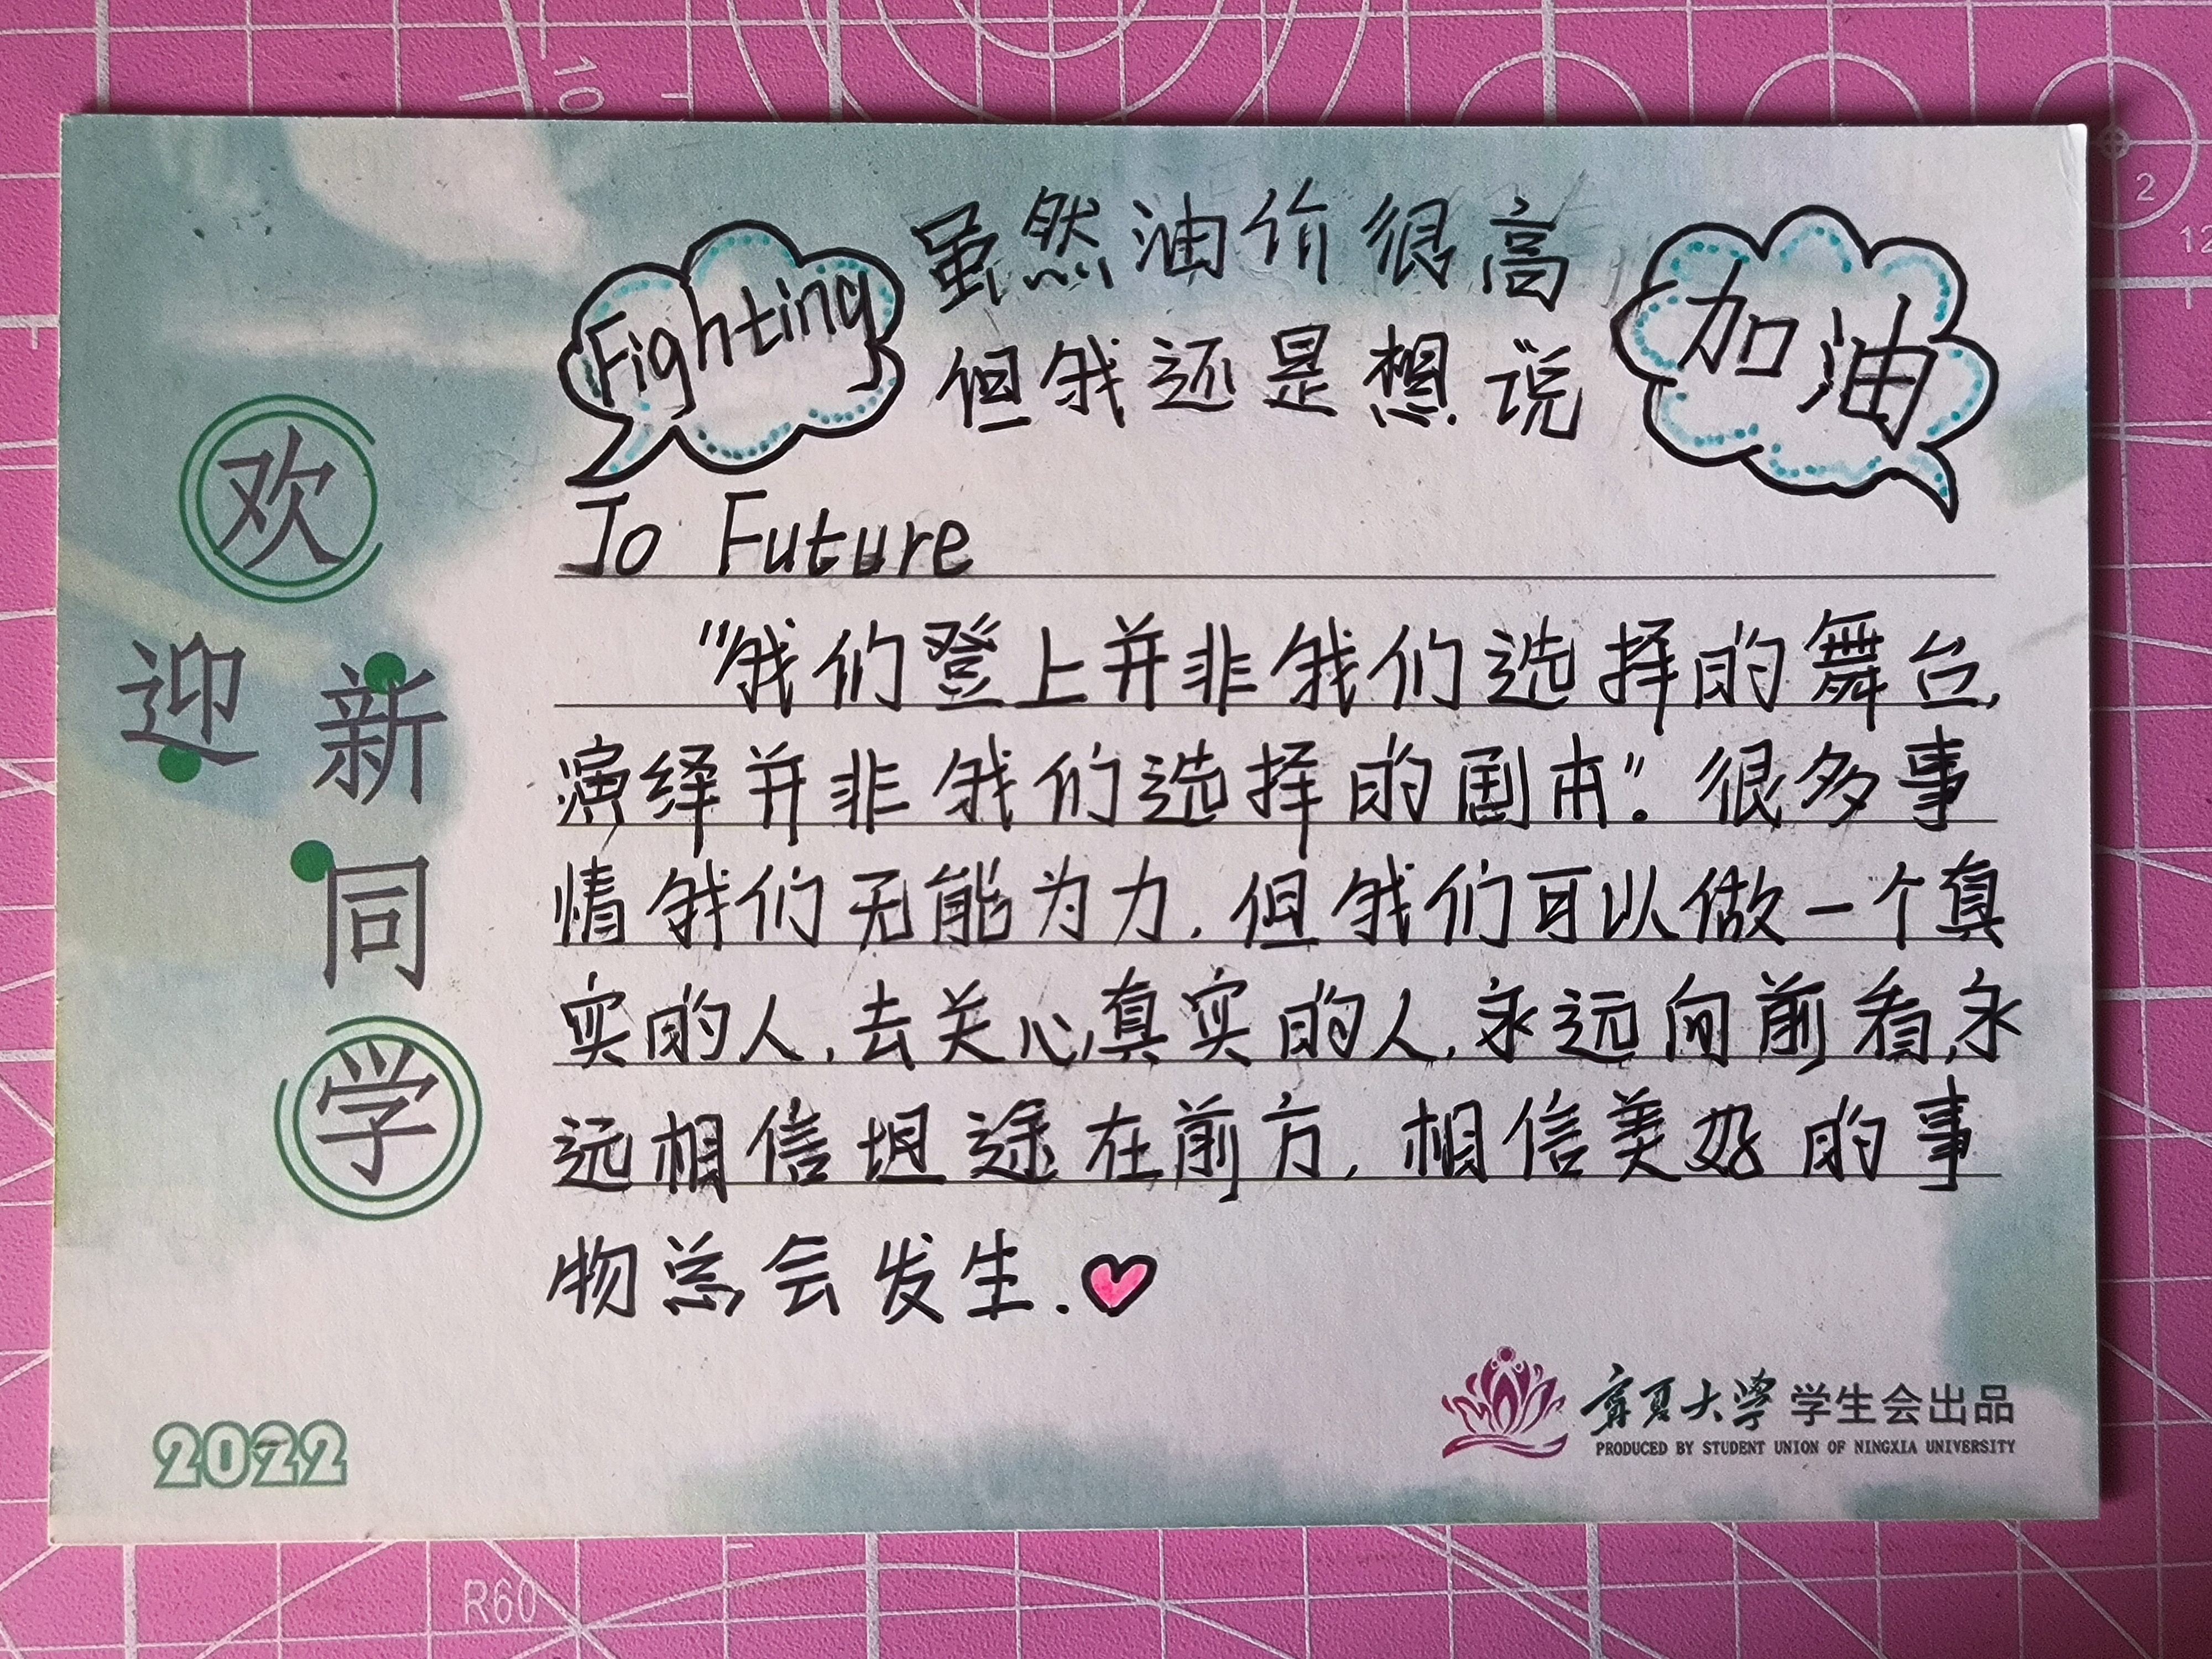 虽然油价很高
Fighting
但我还是想说
加油
To Future
"我们登上并非我们选择的舞台,
演绎并非我们选择的剧本"。很多事
情我们无能为力,但我们可以做一个真
实的人,去关心真实的人,永远向前看,永
远相信坦途在前方,相信美好的事
物总会发生.
欢
迎
新
同
学
2022
宁夏大学 学生会出品
PRODUCED BY STUDENT UNION OF NINGXIA UNIVERSITY
10
2
12
R60